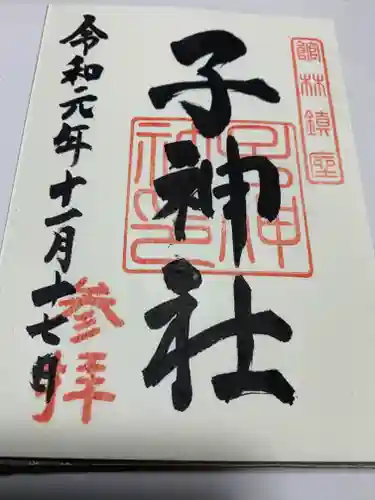 館林鎮座
子神社
子神社印
令和元年十一月十七日
参拝